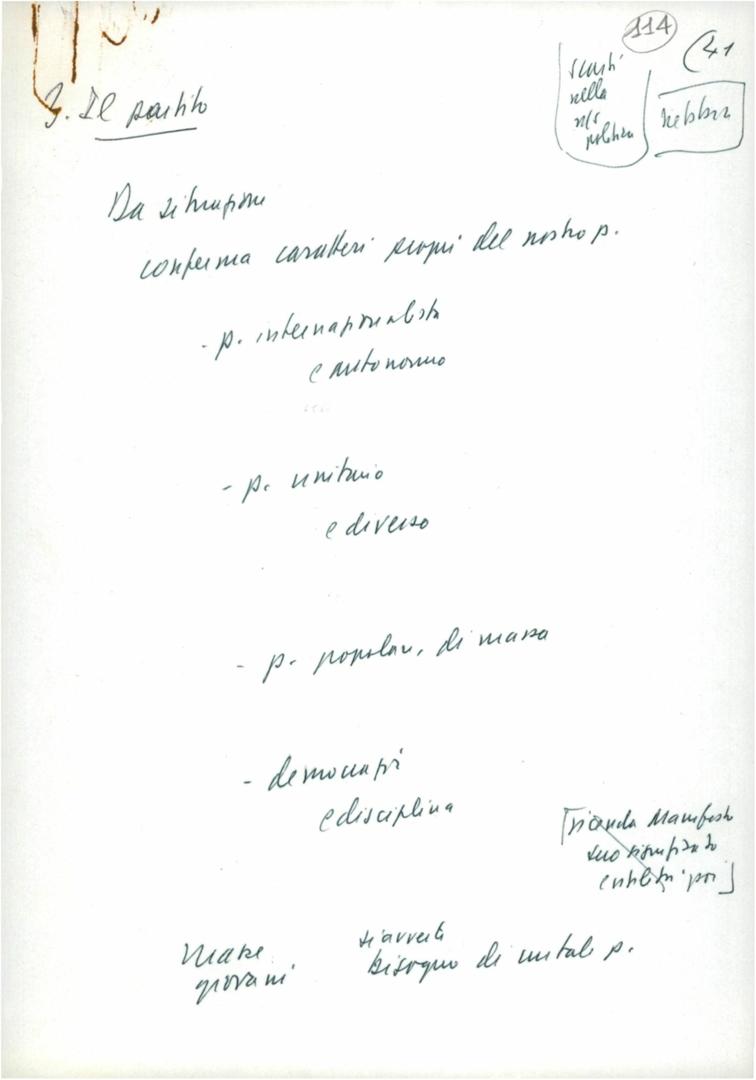 114
(41
3. Il partito
scarti
nella
ns
politica
Da situazione
conferma caratteri scopi del nostro p.
- p. internazionalista
e autonomo
- p. unitario
e diverso
- p. popolare, di massa
- democrazia
e disciplina
[vicenda Manifesto
suo significato
poi]
masse
giovani
si avverte
bisogno di un tale p.